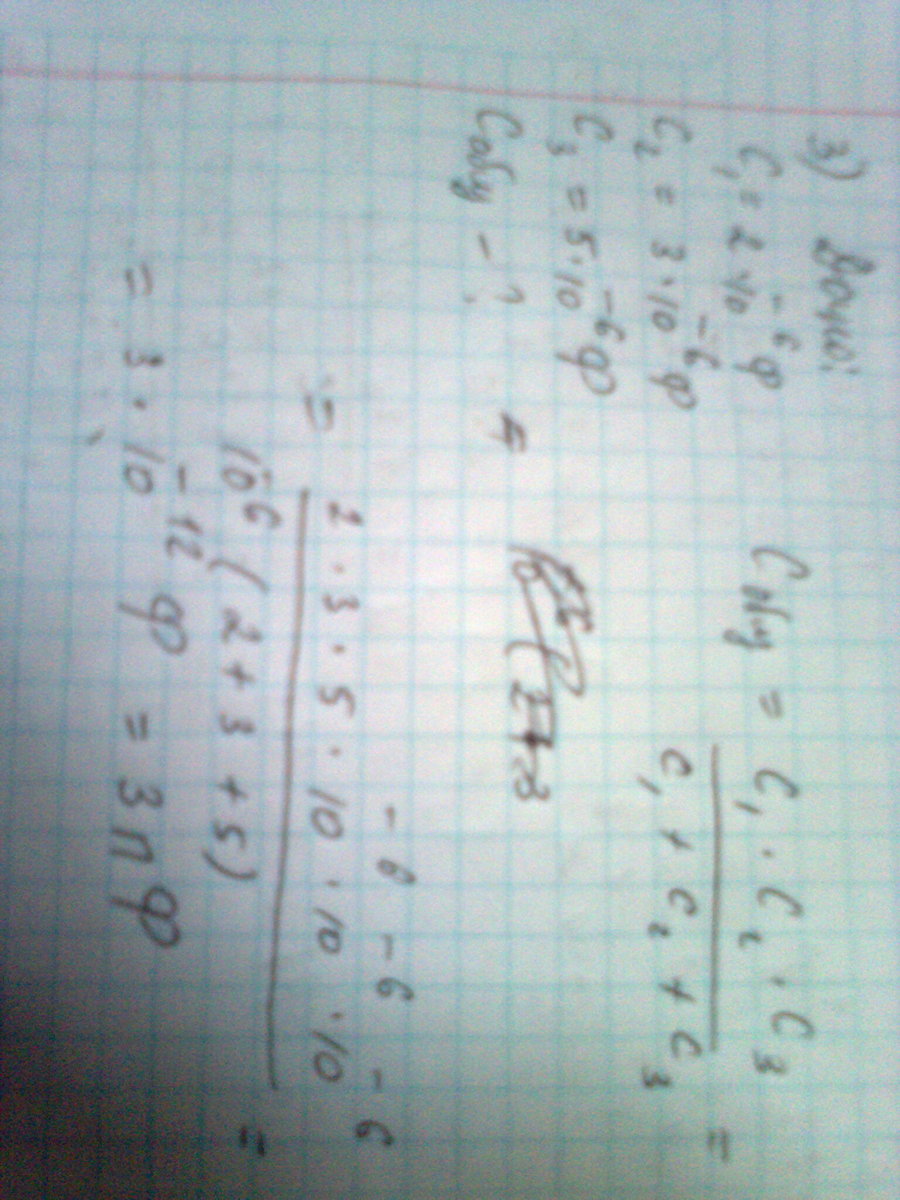 3) Дано:
C₁ = 2·10⁻⁶ Ф
C₂ = 3·10⁻⁶ Ф
C₃ = 5·10⁻⁶ Ф
Cобщ - ?
Cобщ = C₁ · C₂ · C₃ / C₁ + C₂ + C₃ =
= 2 · 3 · 5 · 10⁻⁶ · 10⁻⁶ · 10⁻⁶ / 10⁻⁶ (2 + 3 + 5) =
= 3 · 10⁻¹² Ф = 3пФ